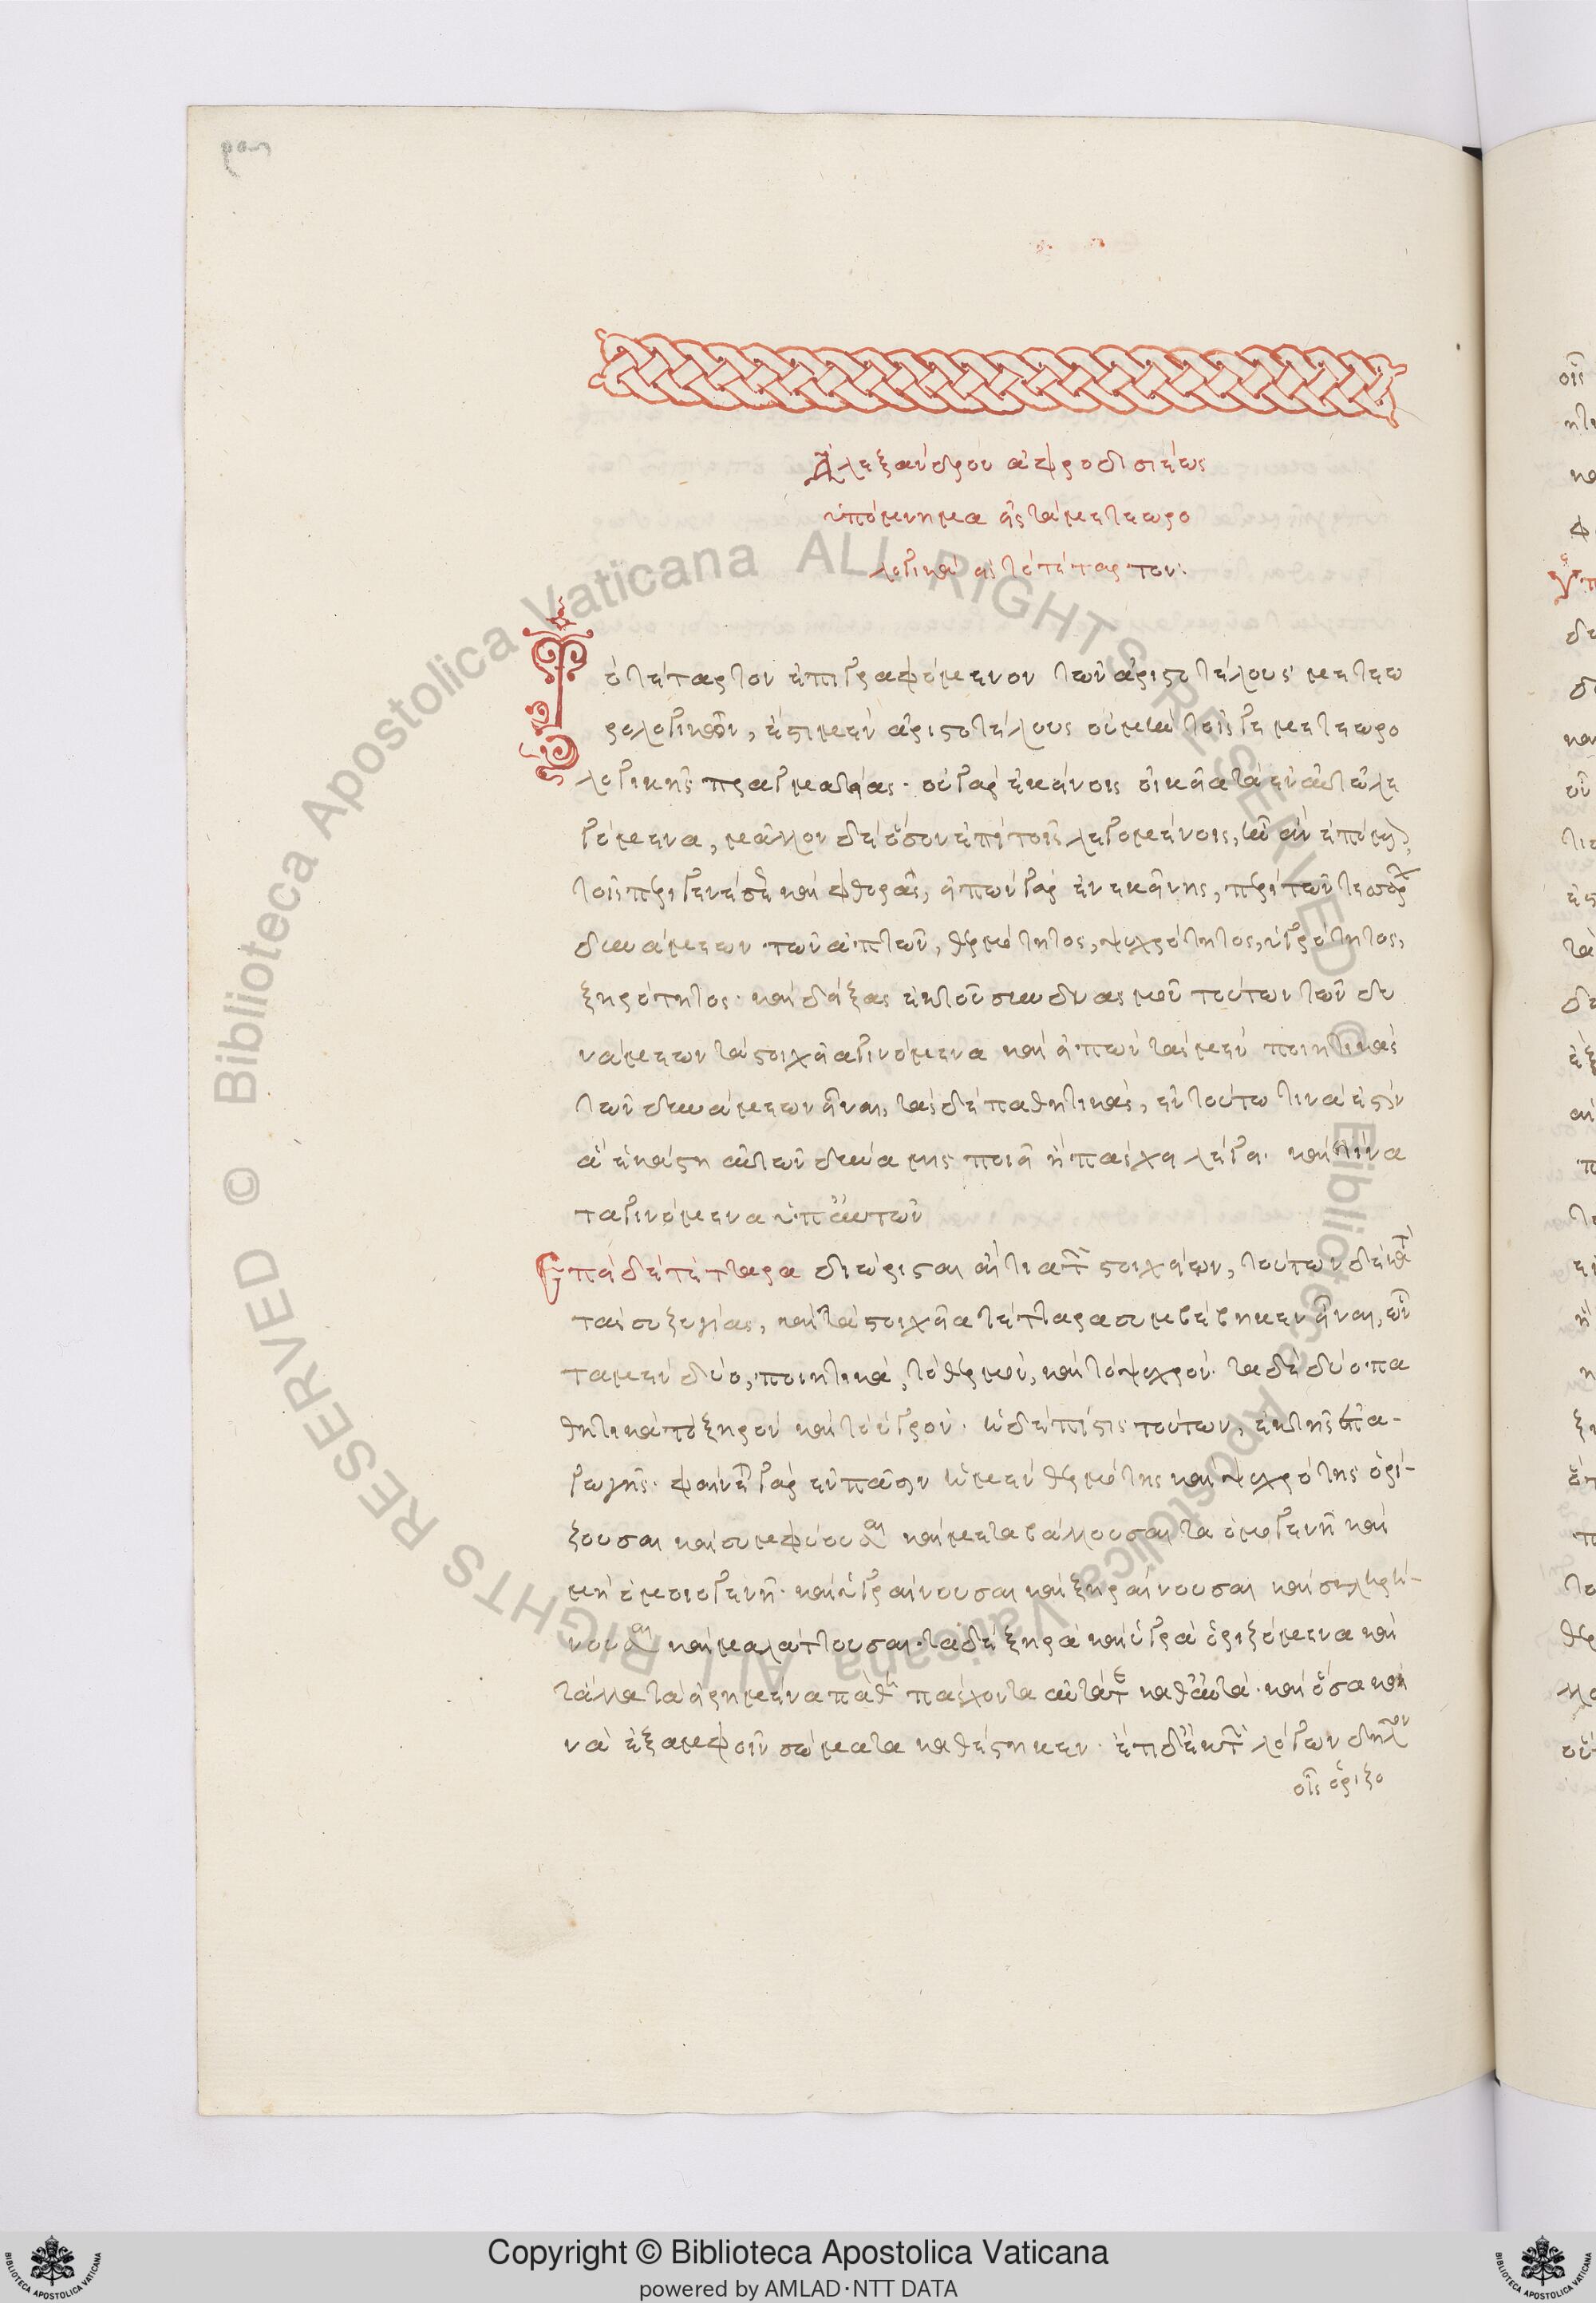 Ἀλεξάνδρου ἀφροδισιέως
ὑπόμνημα εἰς τὰ μετεωρο
λογικὰ εἰς τὸ τέταρτον:
Τὸ τέταρτον ἐπιγραφόμενον τῶν ἀριστοτέλους μετεω
ρολογικῶν, ἔστι μὲν ἀριστοτέλους οὐ μὴν τοῖς γε μετεωρο
λογικῆς πραγματείας· οὐ γὰρ ἐκείνοις οἰκεῖα τὰ ἐν αὐτῷ λε
γόμενα, μᾶλλον δὲ ὅσον ἐπὶ τοῖς λεγομένοις, ἦν ἂν ἑπόμεν
τοῖς περὶ γενέσεως καὶ φθορᾶς, εἰπὼν γὰρ ἐν ἐκείνης, περὶ τῶν τεσσάρ
δυνάμεων τῶν ἁπτῶν, θερμότητος, ψυχρότητος, ὑγρότητος,
ξηρότητος· καὶ δείξας ἐκ τοῦ συνδυασμοῦ τούτων τῶν δυ
νάμεων τὰ στοιχεῖα γινόμενα καὶ εἰπὼν τὰς μὲν ποιητικὰς
τῶν δυνάμεων εἶναι, τὰς δὲ παθητικάς, ἐν τούτω τίνα ἐστὶν
ἃ ἑκάστη αὐτῶν δυνάμεις ποιεῖ ἢ πάσχει λέγει· καὶ τίνα
τα γινόμενα ὑπ' αὐτῶν
Ἐπεὶ δὲ τέτταρα διώρισται αἴτια τῶν στοιχείων, τούτων δὲ κατὰ
τὰς συζυγίας, καὶ τὰ στοιχεῖα τέτταρα συμβέβηκεν εἶναι, ὧν
τα μὲν δύο, ποιητικὰ, τὸ θερμόν, καὶ τὸ ψυχρόν· τα δὲ δύο πα
θητικὰ τὸ ξηρὸν καὶ τὸ ὑγρόν· ἡ δὲ πίστις τούτων, ἐκ τῆς ἐπα-
γωγῆς· φαίνεται γὰρ ἐν πᾶσιν ἡ μὲν θερμότης καὶ ψυχρότης ὁρί-
ζουσαι καὶ συμφύουσαι καὶ μεταβάλλουσαι τα ὁμογενῆ καὶ
μὴ ὁμοιογενῆ· καὶ ὑγραίνουσαι καὶ ξηραίνουσαι καὶ σκληρύ-
νουσαι καὶ μαλάττουσαι· τα δὲ ξηρὰ καὶ ὑγρὰ ὁριζόμενα καὶ
τἆλλα τὰ εἰρημένα πάθη πάσχοντα αὐτά τε καθ' αὑτά· καὶ ὅσα κοι
νὰ ἐξ ἀμφοῖν σώματα καθέστηκεν· ἔτι δ' ἐκ τῶν λόγων δῆλον
οἷς ὁριζο